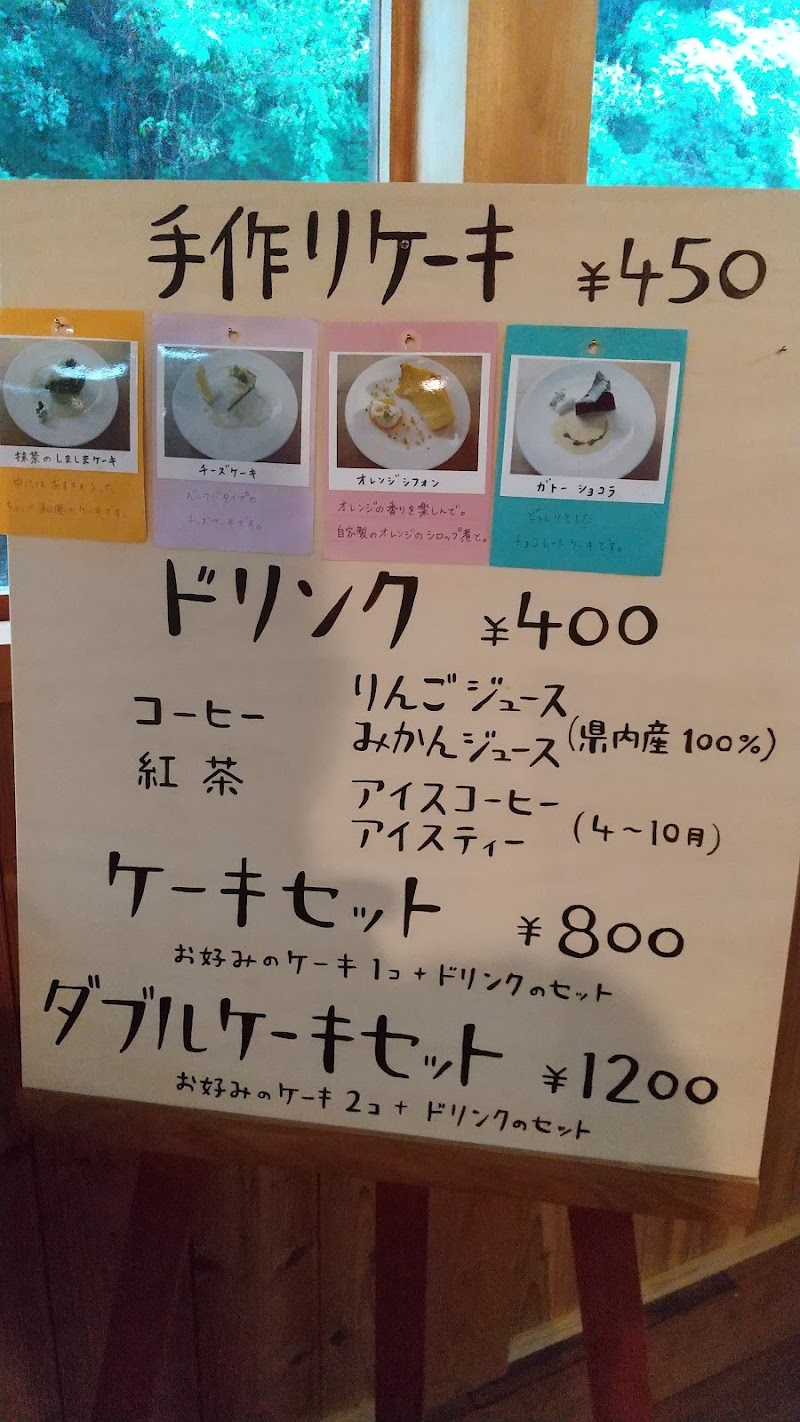 手作りケーキ ¥450
抹茶のしましまケーキ
中には あずきも入った
ちょっと和風のケーキです。
チーズケーキ
ベークドタイプの
チーズケーキです。
オレンジシフォン
オレンジの香りを楽しんで。
自家製のオレンジのシロップ煮と。
ガトーショコラ
どっしりとした
チョコレートケーキです。
ドリンク ¥400
コーヒー
紅茶
りんごジュース
みかんジュース (県内産 100%)
アイスコーヒー
アイスティー (4〜10月)
ケーキセット ¥800
お好みのケーキ 1コ + ドリンクのセット
ダブルケーキセット ¥1200
お好みのケーキ 2コ + ドリンクのセット